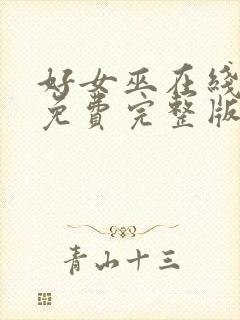 好女巫在线
免费完整版
青山十三